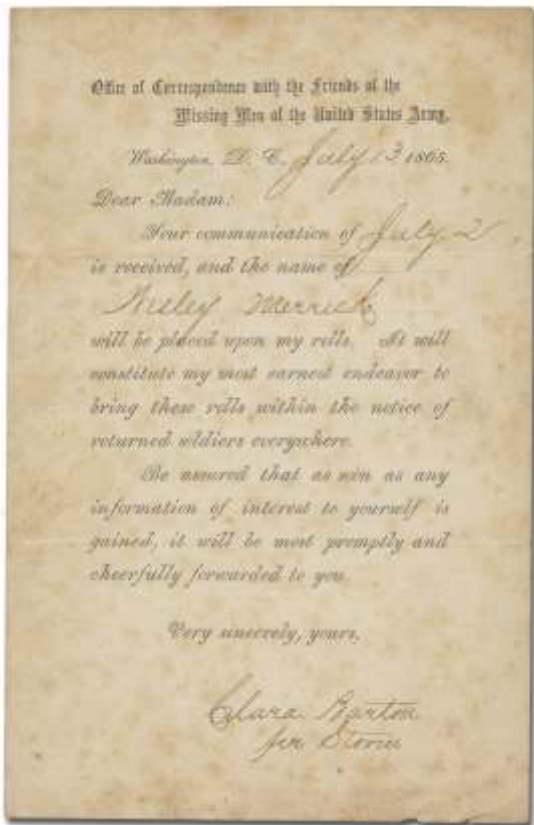 Office of Correspondence with the Friends of the
Missing Men of the United States Army,
Washington, D. C. July 13 1865.
Dear Madam:
Your communication of July 2
is received, and the name of
Wesley Merrick
will be placed upon my rolls. It will
constitute my most earnest endeavor to
bring these rolls within the notice of
returned soldiers everywhere.
Be assured that as soon as any
information of interest to yourself is
gained, it will be most promptly and
cheerfully forwarded to you.
Very sincerely, yours,
Clara Barton
per